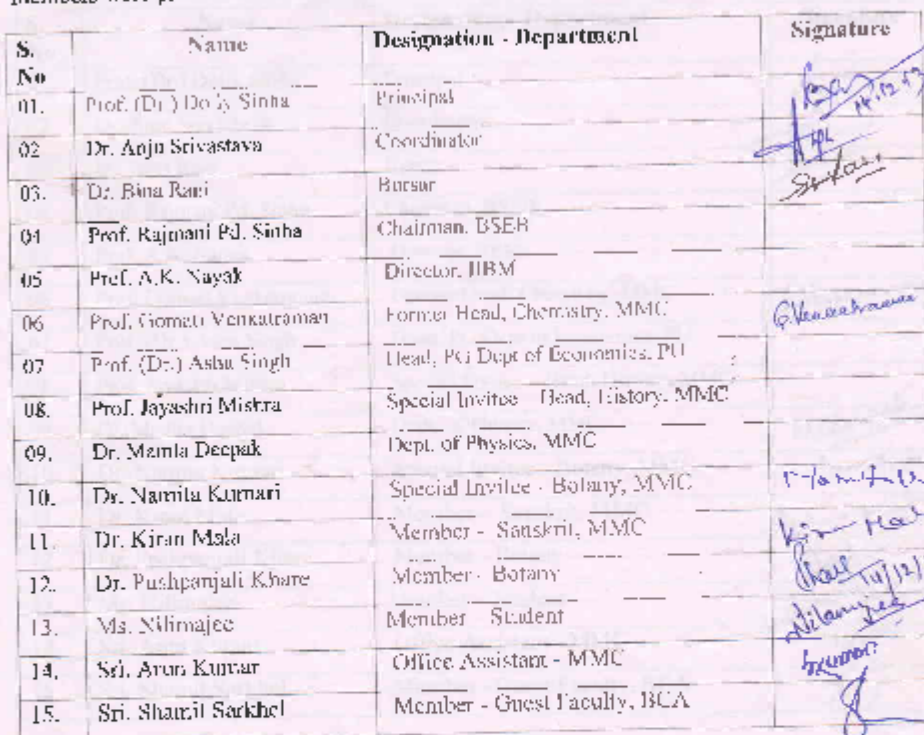 Members were
S. No Name Designation - Department Signature
01. Prof. (Dr.) Dolly Sinha Principal
02 Dr. Anju Srivastava Coordinator
03. Dr. Bina Rani Bursar
04 Prof. Rajmani Pd. Sinha Chairman, BSEB
05 Prof. A.K. Nayak Director, IIBM
06 Prof. Gomati Venkatraman Former Head, Chemistry, MMC G. Venkatraman
07 Prof. (Dr.) Asha Singh Head, PG Dept of Economics, PU
08. Prof. Jayashri Mishra Special Invitee - Head, History, MMC
09. Dr. Mamta Deepak Dept. of Physics, MMC
10. Dr. Namita Kumari Special Invitee - Botany, MMC
11. Dr. Kiran Mala Member - Sanskrit, MMC Kiran Mala
12. Dr. Pushpanjali Khare Member - Botany Khare
13. Ms. Nilimajee Member - Student
14. Sri. Arun Kumar Office Assistant - MMC
15. Sri. Shamil Sarkhel Member - Guest Faculty, BCA